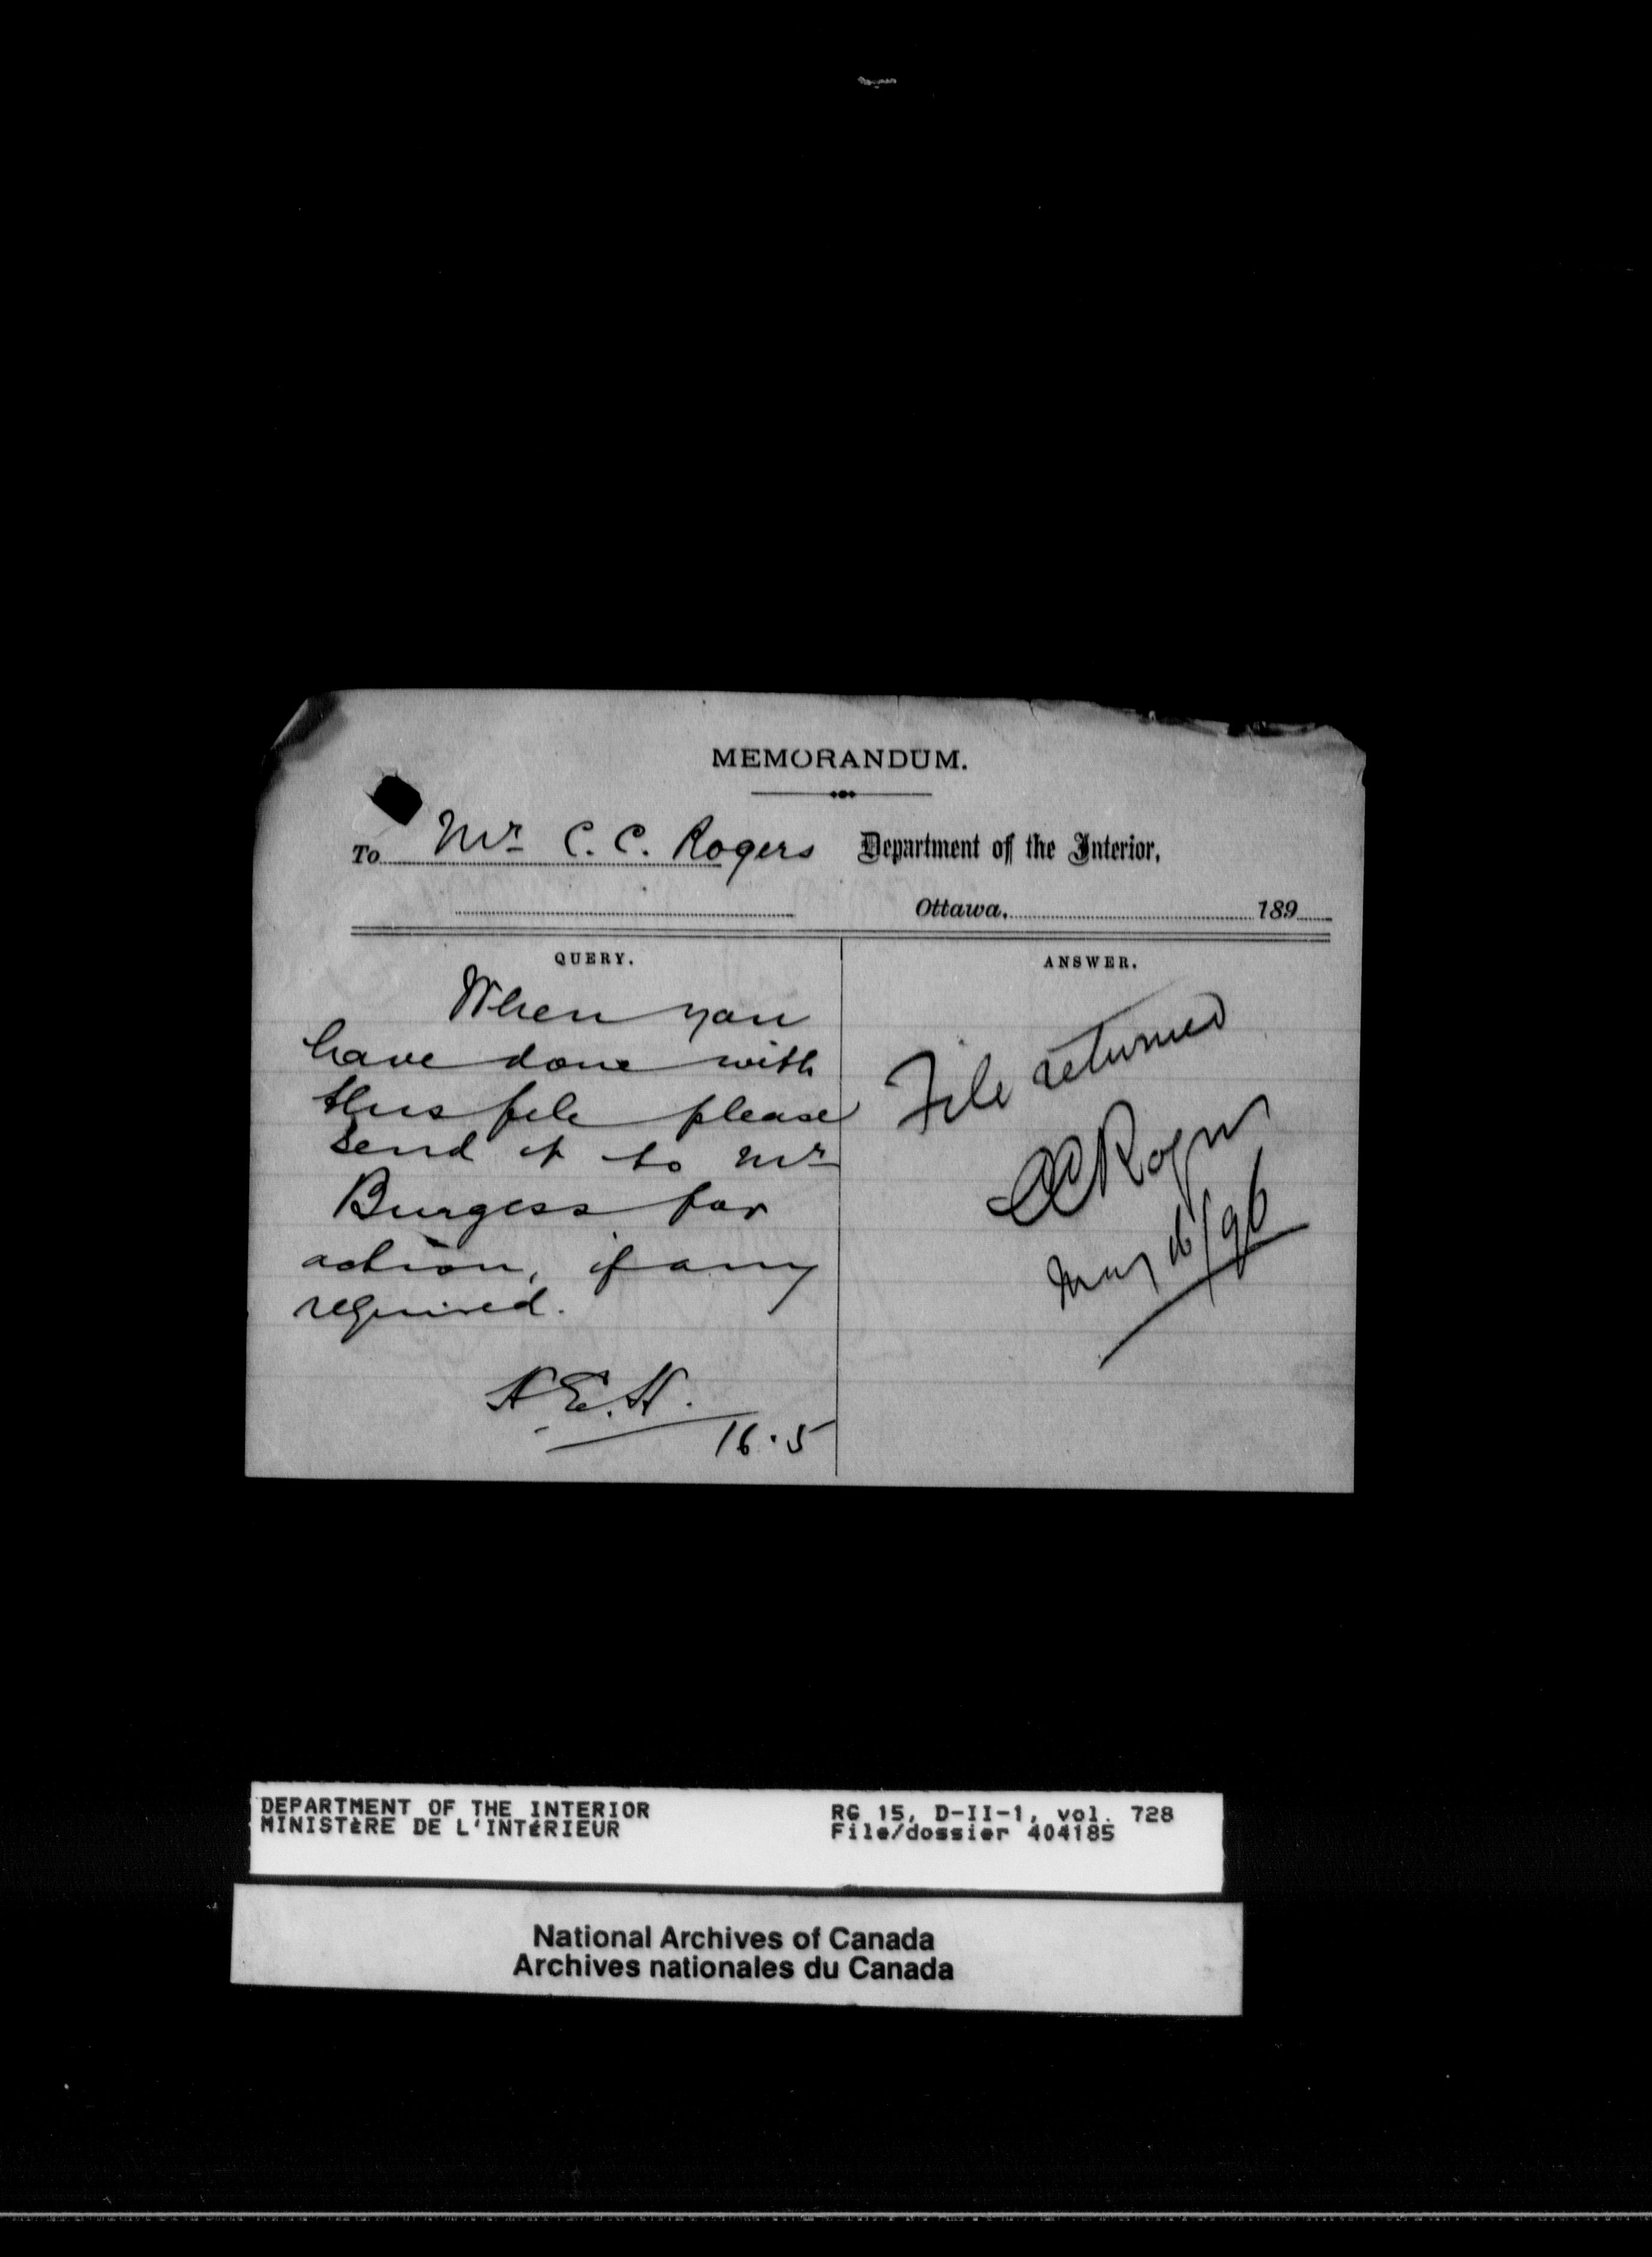 MEMORANDUM.
To Mr C. C. Rogers Department of the Interior,
Ottawa, 189
QUERY.
When you
have done with
this file please
send it to Mr
Burgess for
action, if any
required.
16.5
ANSWER.
File returned
CCRogers
May 16/96
DEPARTMENT OF THE INTERIOR
MINISTÈRE DE L'INTÉRIEUR
RG 15, D-II-1, vol. 728
File/dossier 404185
National Archives of Canada
Archives nationales du Canada